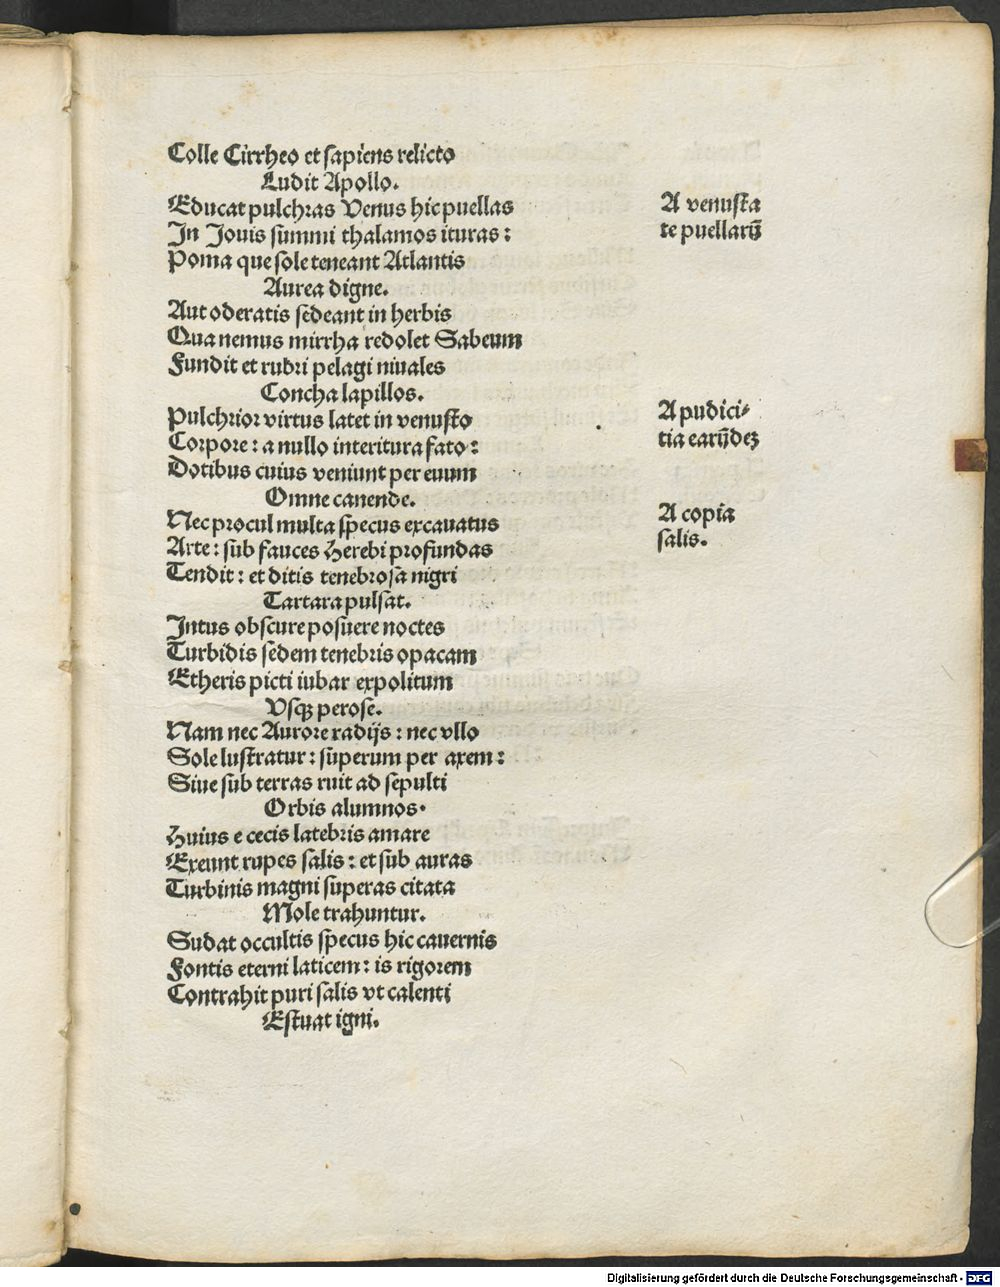 Colle Cirrheo et sapiens relicto
Ludit Apollo.
Educat pulchras Venus hic puellas
In Jouis summi thalamos ituras:
Poma que sole teneant Atlantis
Aurea digne.
Aut oderatis sedeant in herbis
Qua nemus mirrha redolet Sabeum
Fundit et rubri pelagi niuales
Concha lapillos.
Pulchrior virtus latet in venusto
Corpore: a nullo interitura fato:
Dotibus cuius veniunt per euum
Omne canende.
Nec procul multa specus excauatus
Arte: sub fauces Herebi profundas
Tendit: et ditis tenebrosa nigri
Tartara pulsat.
Intus obscure posuere noctes
Turbidis sedem tenebris opacam
Etheris picti iubar expolitum
Vsqꝫ perose.
Nam nec Aurore radijs: nec vllo
Sole lustratur: superum per axem:
Siue sub terras ruit ad sepulti
Orbis alumnos.
Huius e cecis latebris amare
Exeunt rupes salis: et sub auras
Turbinis magni superas citata
Mole trahuntur.
Sudat occultis specus hic cauernis
Fontis eterni laticem: is rigorem
Contrahit puri salis vt calenti
Estuat igni.
A venusta
te puellarū
A pudici-
tia earūdeꝫ
A copia
salis.
Digitalisierung gefördert durch die Deutsche Forschungsgemeinschaft - DFG